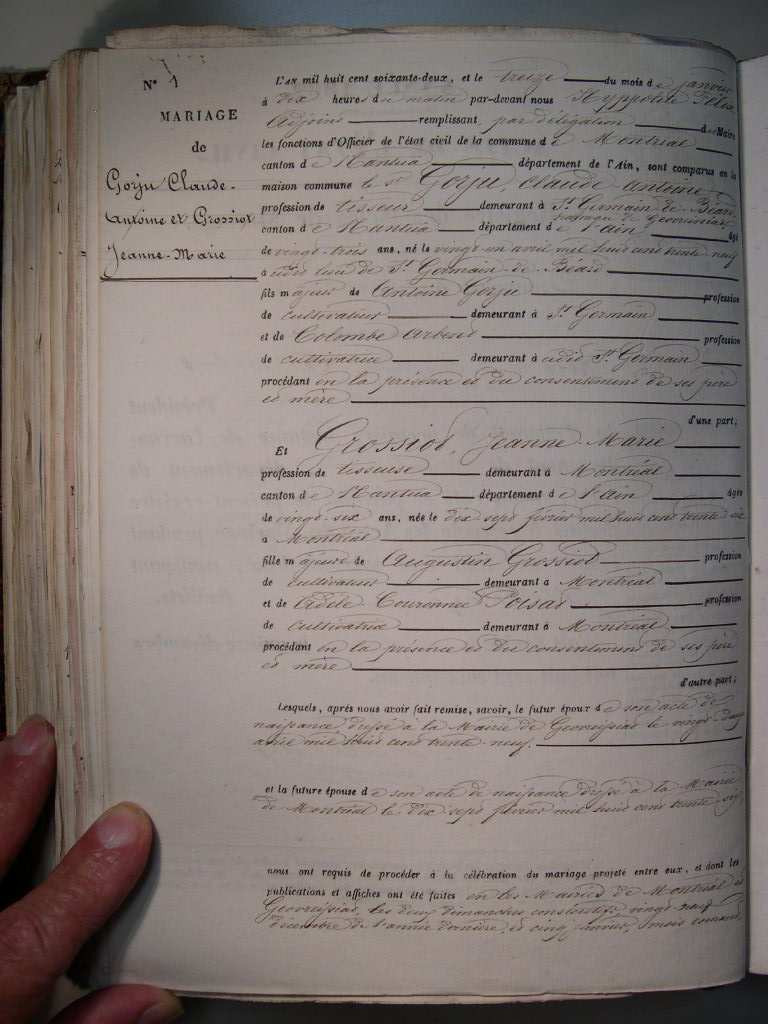 N° 1
MARIAGE
de
Gorju Claude-
Antoine et Grossiot
Jeanne-Marie
L'AN mil huit cent soixante-deux, et le treize du mois de janvier
à dix heures du matin par-devant nous Hyppolite
Adjoint remplissant par délégation du Maire
les fonctions d'Officier de l'état civil de la commune de Montréal
canton de Nantua département de l'Ain, sont comparus en la
maison commune le Sr Gorju, Claude Antoine
profession de tisseur demeurant à St. Germain de Béard,
hameau de Geovreissiat,
canton de Nantua département de l'ain âgé
de vingt-trois ans, né le vingt un avril mil huit cent trente neuf
à udit lieu de St. Germain de Béard
fils majeur de Antoine Gorju profession
de cultivateur demeurant à St. Germain
et de Colombe Arbenet profession
de cultivatrice demeurant à udit St. Germain
procédant en la présence et du consentement de ses père
et mère
d'une part;
Et Grossiot, Jeanne-Marie
profession de tisseuse demeurant à Montréal
canton de Nantua département de l'ain âgée
de vingt-six ans, née le dix sept février mil huit cent trente six
à Montréal
fille majeure de Augustin Grossiot profession
de cultivateur demeurant à Montréal
et de Adèle Couronnée Poisat profession
de cultivatrice demeurant à Montréal
procédant en la présence et du consentement de ses père
et mère
d'autre part;
Lesquels, après nous avoir fait remise, savoir, le futur époux de son acte de
naissance dressé à la Mairie de Geovreissiat le vingt deux
avril mil huit cent trente-neuf.
et la future épouse de son acte de naissance dressé à la Mairie
de Montréal le dix sept février mil huit cent trente-six
nous ont requis de procéder à la célébration du mariage projeté entre eux, et dont les
publications et affiches ont été faites en les Mairies de Montréal et
Geovreissiat, les deux dimanches consécutifs, vingt-neuf
décembre de l'année dernière, et cinq janvier, mois courant,